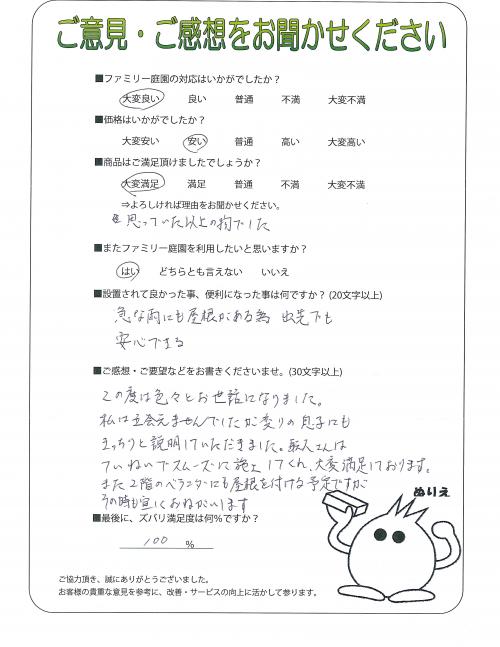 ご意見・ご感想をお聞かせください
■ファミリー庭園の対応はいかがでしたか？
大変良い 良い 普通 不満 大変不満
■価格はいかがでしたか？
大変安い 安い 普通 高い 大変高い
■商品はご満足頂けましたでしょうか？
大変満足 満足 普通 不満 大変不満
⇒よろしければ理由をお聞かせください。
思っていた以上の物でした
■またファミリー庭園を利用したいと思いますか？
はい どちらとも言えない いいえ
■設置されて良かった事、便利になった事は何ですか？ (20文字以上)
急な雨にも屋根がある為 出先でも
安心できる
■ご感想・ご要望などをお書きくださいませ。(30文字以上)
この度は色々とお世話になりました。
私は立会えませんでしたが変りの息子にも
きっちりと説明していただきました。職人さんは
ていねいでスムーズに施工してくれ、大変満足しております。
また2階のベランダにも屋根を付ける予定ですが
その時も宜しくおねがいします
■最後に、ズバリ満足度は何％ですか？
100 ％
ぬりえ
ご協力頂き、誠にありがとうございました。
お客様の貴重な意見を参考に、改善・サービスの向上に活かして参ります。